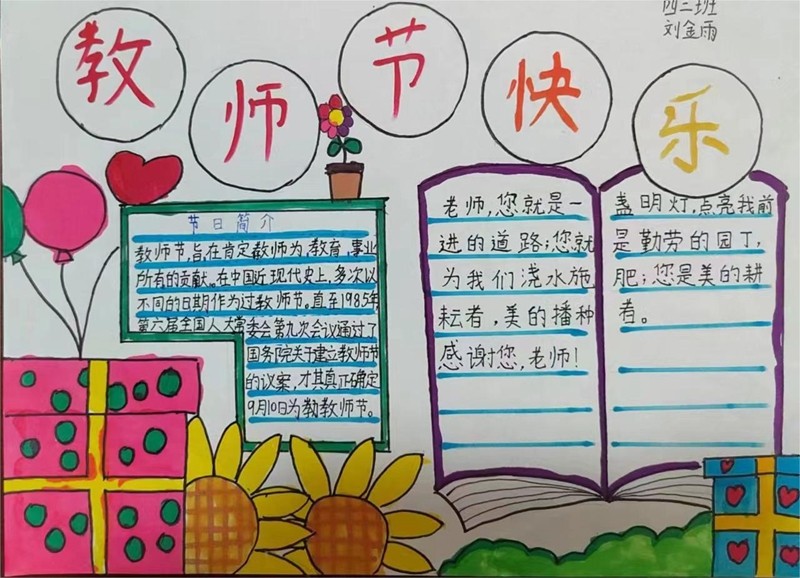 四三班
刘金雨
教师节快乐
节日简介
教师节,旨在肯定教师为,教育,事业
所有的贡献。在中国近现代史上,多次以
不同的日期作为过教师节。直至1985年
第六届全国人大常委会第九次会议通过了
国务院关于建立教师节
的议案,才其真正确定
9月10日为教师节。
老师,您就是一盏明灯,点亮我前
进的道路;您就是勤劳的园丁,
为我们浇水施肥;您是美的耕
耘者,美的播种者。
感谢您,老师!